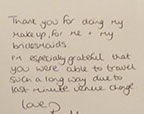 Thank you for doing my
makeup, for me + my
bridesmaids
I'm especially grateful that
you were able to travel
such a long way due to
last minute venue change
love